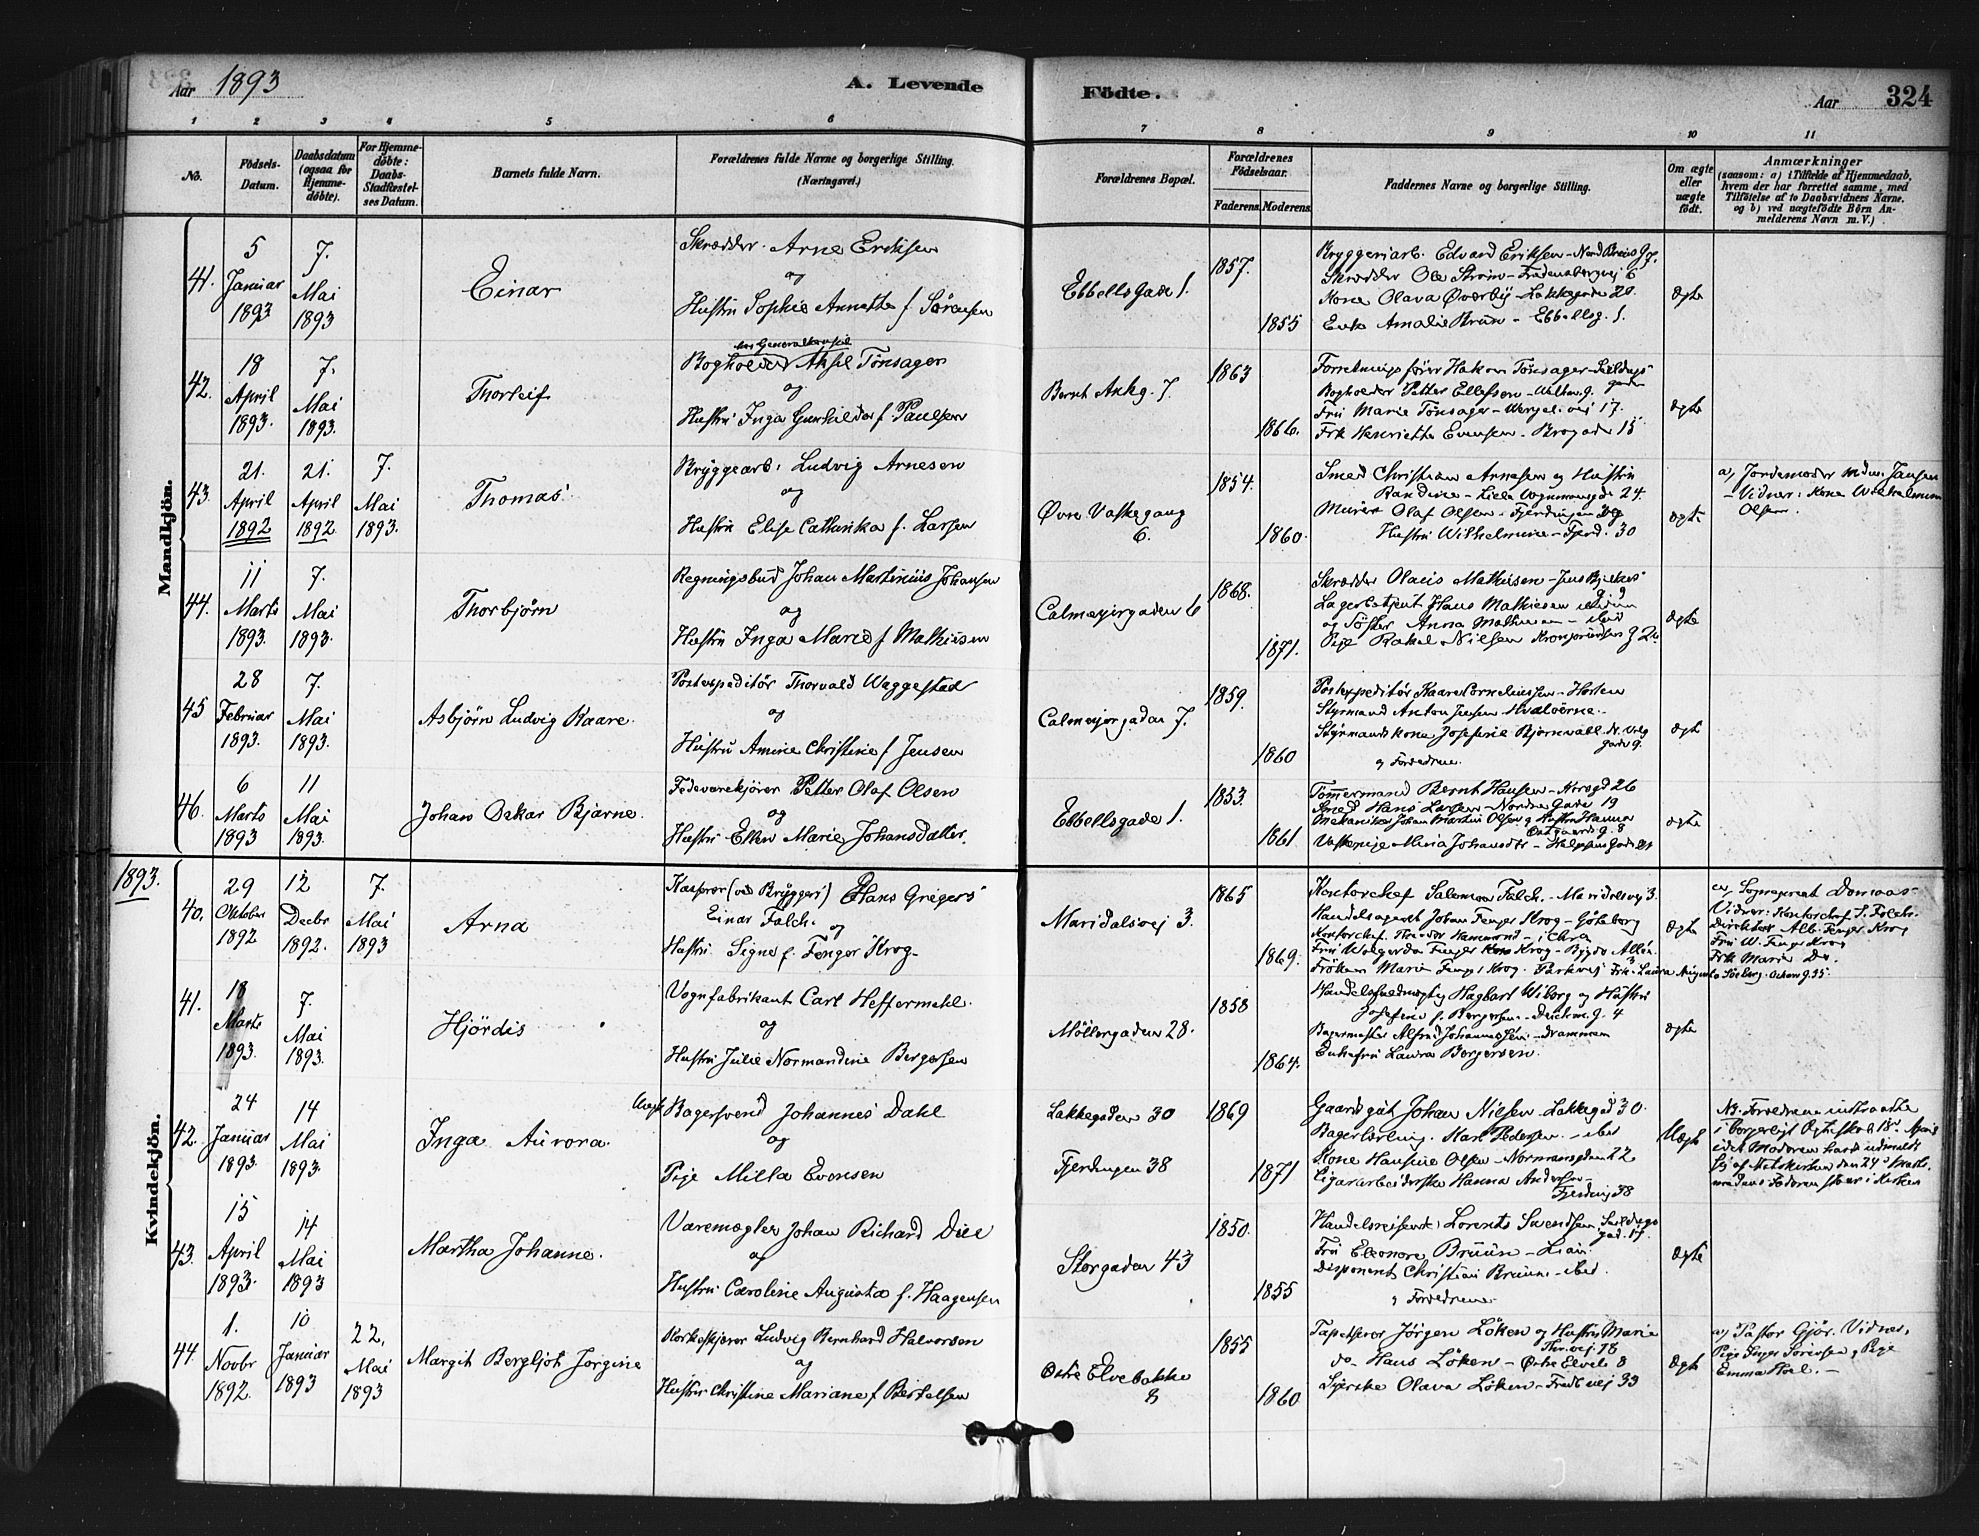 Aar 1893
A. Levende
Födte.
Aar
324
1 2 3 4 5 6 7 8 9 10 11
No.
Födsels-
Datum.
Daabsdatum
(ogsaa for
Hjemme-
döbte).
For Hjemme-
döbte:
Daabs-
Stadfæstel-
ses Datum.
Barnets fulde Navn.
Forældrenes fulde Navne og borgerlige Stilling.
(Næringsvei.)
Forældrenes Bopæl.
Forældrenes
Födselsaar.
Faderens. Moderens.
Faddernes Navne og borgerlige Stilling.
Om ægte
eller
uægte
födt.
Anmærkninger
(saasom: a) i Tilfælde af Hjemmedaab,
hvem der har forrettet samme, med
Tilföielse af to Daabsvidners Navne.
og b) ved uægtefödte Börn An-
melderens Navn m. V.)
Mandkjön.
41.
5
Januar
1893
7.
Mai
1893
Einar
Skrædder Arne Eriksen
og
Hustru Sophie Annette f. Sørensen
Ebbellsgade 1.
1857.
1855
Bryggeriarb. Edvard Eriksen
Skrædder Ole Strøm - Fredensborgvej 6
Kone Olava Øverby - Lakkegade 20.
Enke Amalie Bruun - Ebbellsg. 1.
Ægte
42.
18
April
1893.
7.
Mai
1893.
Thorleif
hos Generalkonsul
Bogholder Aksel Tönsager
og
Hustru Inga Gunhilda f Paulsen
Bernt Ankg. 7.
1863
1866.
Forretningsfører Hakon Tönsager - Sceldugs-
gaden
Bogholder Petter Ellefsen
Fru Marie Tönsager - Wergel. vej 17.
Frk Henriette Evensen - Brogade 15
Ægte
43.
21.
April
1892
21.
April
1892.
7.
Mai
1893.
Thomas
Bryggearb. Ludvig Arnesen
og
Hustru Elise Cathinka f. Larsen
Øvre Vaskegang
6.
1854.
1860.
Smed Christian Arnesen og Hustru
Randine - Lille Vognmansgd 24.
Murer Olaf Olsen - Fjerdingen 30
Hustru Wilhelmine - Fjerd. 30
Ægte
a, Jordemoder Mdm. Jansen
- Vidner: Kone Wilhelmine
Olsen.
44.
11
Marts
1893.
7.
Mai
1893.
Thorbjörn
Regningsbud Johan Martinius Johansen
og
Hustru Inga Marie f Mathiisen
Calmeyergaden 6
1868.
1871.
Skrædder Olaus Mathisen - Jens Bjelkes
g. 9
Lagerbetjent Hans Mathiesen
og Söster Anna Mathiesen - ibid
Pige Rakel Nielsen Kronprinsens g 2
Ægte
45
28
Februar
1893.
7.
Mai
1893.
Asbjörn Ludvig Kaare.
Postexpeditör Thorvald Waggestad
og
Hustru Amine Christine f Jensen
Calmeyergaden 7.
1859.
1860
Postexpeditör Kaare Corneliussen - Horten
Styrmand Anton Jensen Hvaløerne.
Styrmandskone Josefine Björnvall
gade 9.
og Forældrene.
Ægte
46.
6
Marts
1893
11
Mai
1893.
Johan Oskar Bjarne.
Fedevarekjörer Petter Olaf Olsen
og
Hustru Ellen Marie Johansdatter.
Ebbellsgade 1.
1853.
1861
Tömmermand Bernt Hansen - Korsgd 26
Smed Hans Larsen - Nordregade 19
Mekaniker Johan Martin Olsen og Hustru Hanna
Østgaards g. 8
Vaskepige Maria Johansdtr
Ægte
1893.
Kvindekjön.
40.
29
Oktober
1892
12
Decbr
1892.
7.
Mai
1893
Arna
Kasserer (ved Bryggeri) Hans Gregers
Einar Falch.
og
Hustru Signe f. Fenger Krog
Maridalsvej 3.
1865
1869.
Kontorchef Salomon Falch. Maridalsvej 3.
Handelsagent Johan Fenger Krog - Göteborg
Kontorchef Theodor Hammond - i Chra
Fru Walgerda Fenger Krog - Bygdø Allé
Fröken Marie Fenger Krog. Parkvej Frk. Laura Augusta Söeberg. Oscars g. 35
Ægte
a, Sogneprest Domaas -
Vidner: Kontorchef S. Falch.
Direktör Alb. Fenger Krog
Fru W. Fenger Krog
Frk Marie Do.
41.
18
Marts
1893.
7.
Mai
1893.
Hjördis
Vognfabrikant Carl Heffermehl.
og
Hustru Julie Normandine Bergersen
Möllergaden 28.
1858
1864.
Handelsfuldmægtig Hagbart Wiborg og Hustru
Josefine f. Bergersen - Deichm. g. 4
Bagermester Alfred Johannessen - Drammen
Enkefru Laura Bergersen.
Ægte
42.
24
Januar
1893.
14
Mai
1893.
Inga Aurora.
Ungk. Bagersvend Johannes Dahl
og
Pige Milla Evensen
Lakkegaden 30
Fjerdingen 38
1869
1871
Gaardsgut Johan Nilsen - Lakkegd 30.
Bagerlærling Karl Pedersen. - ibid
Kone Hansine Olsen - Normansgaden 22
Cigararbeiderske Hanna Andersen -
Fjerding 38
Uægte
NB. Forældrene indtraadte
i borgerligt Ægteskab 18. April
idet Moderen havde udmeldt
sig af Statskirken den 24. Marts,
medens Faderen staar i Kirken
43.
15
April
1893.
14
Mai
1893
Martha Johanne.
Varemægler Johan Richard Due
og
Hustru Caroline Augusta f. Haagensen
Storgaden 43
1850.
1855
Handelsreisende Lorents Svendsen
Fru Eleonore Bruun - Lian.
Disponent Christian Bruun. - ibid.
og Forældrene
Ægte
44.
1.
Novbr
1892.
10
Januar
1893
22.
Mai
1893
Margit Bergljot Jorgine
Korkeskjærer Ludvig Bernhard Halvorsen
og
Hustru Christine Mariane f Bertelsen
Østre Elvebakke
8
1855
1860
Tapetserer Jörgen Löken og Hustru Marie
Thr.vej 78
do - Hans Löken - Østre Elveb 8
Syerske Olava Löken - Fredb vej 33
Ægte
a, Pastor Gjör. Vidner,
Pige Inger Sörensen, Pige
Emma Hoel. -